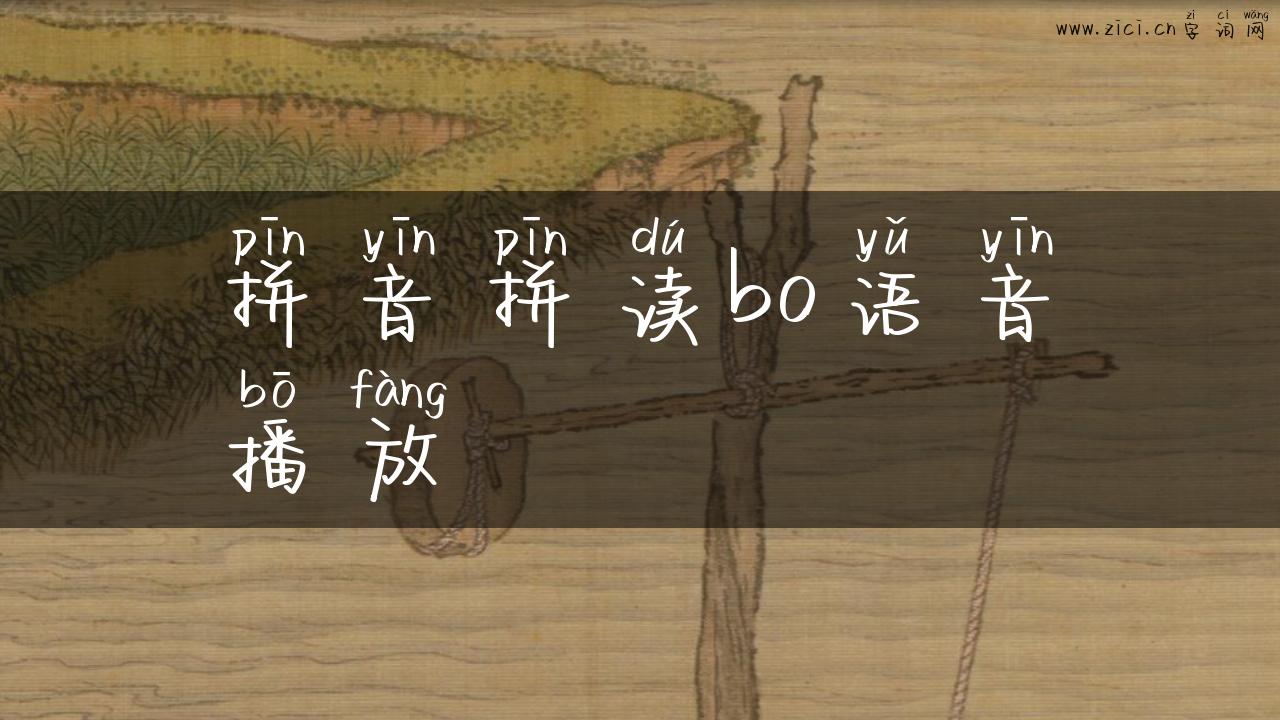 zì cí wǎng
www.zici.cn 字 词 网
pīn yīn pīn dú yǔ yīn
拼 音 拼 读 bo 语 音
bō fàng
播 放